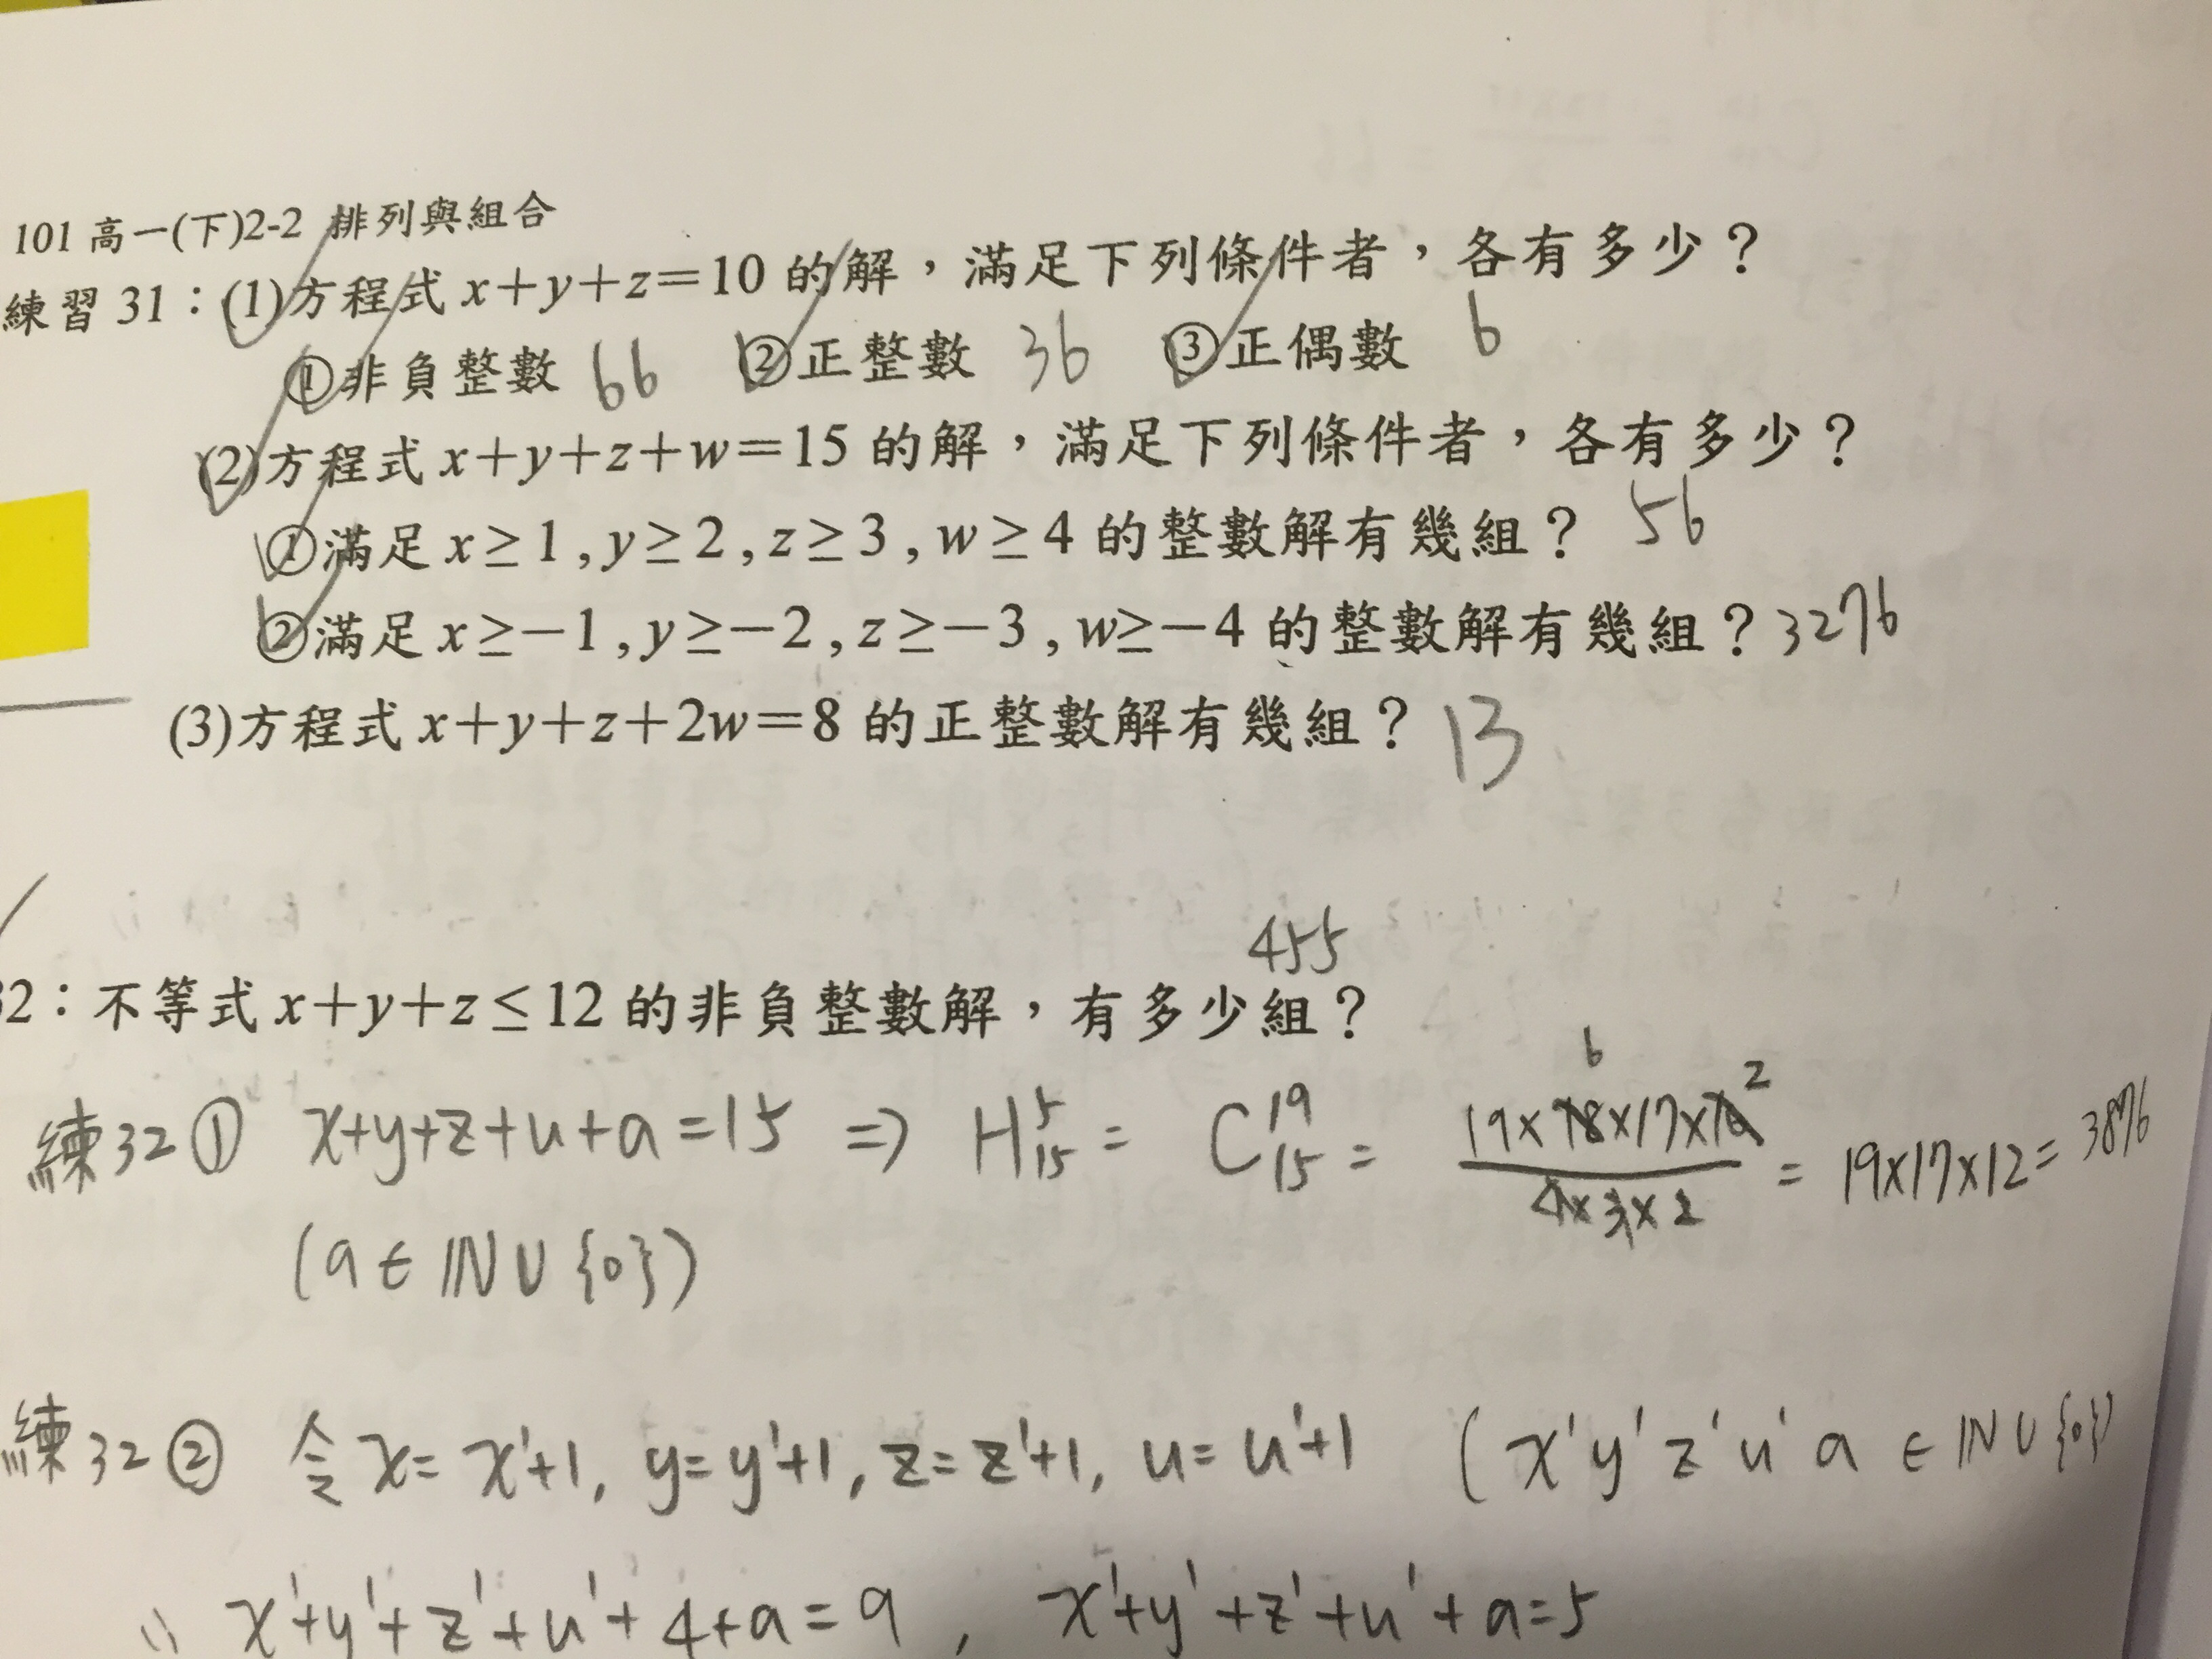 101 高一(下)2-2 排列與組合
練習 31：(1)方程式 x+y+z=10 的解，滿足下列條件者，各有多少？
①非負整數 66 ②正整數 36 ③正偶數 6
(2)方程式 x+y+z+w=15 的解，滿足下列條件者，各有多少？
①滿足 x≥1,y≥2,z≥3,w≥4 的整數解有幾組？ 56
②滿足 x≥−1,y≥−2,z≥−3,w≥−4 的整數解有幾組？ 3276
(3)方程式 x+y+z+2w=8 的正整數解有幾組？ 13
455
32：不等式 x+y+z≤12 的非負整數解，有多少組？
練32① x+y+z+u+a=15 ⇒ H⁵₁₅ = C¹⁹₁₅ = 19×18×17×16 / 4×3×2 = 19×17×12 = 3876
6 2
(a∈ℕ∪{0})
練32② 令 x=x'+1, y=y'+1, z=z'+1, u=u'+1 (x' y' z' u' a ∈ ℕ∪{0})
∴ x'+y'+z'+u'+4+a=9, x'+y'+z'+u'+a=5